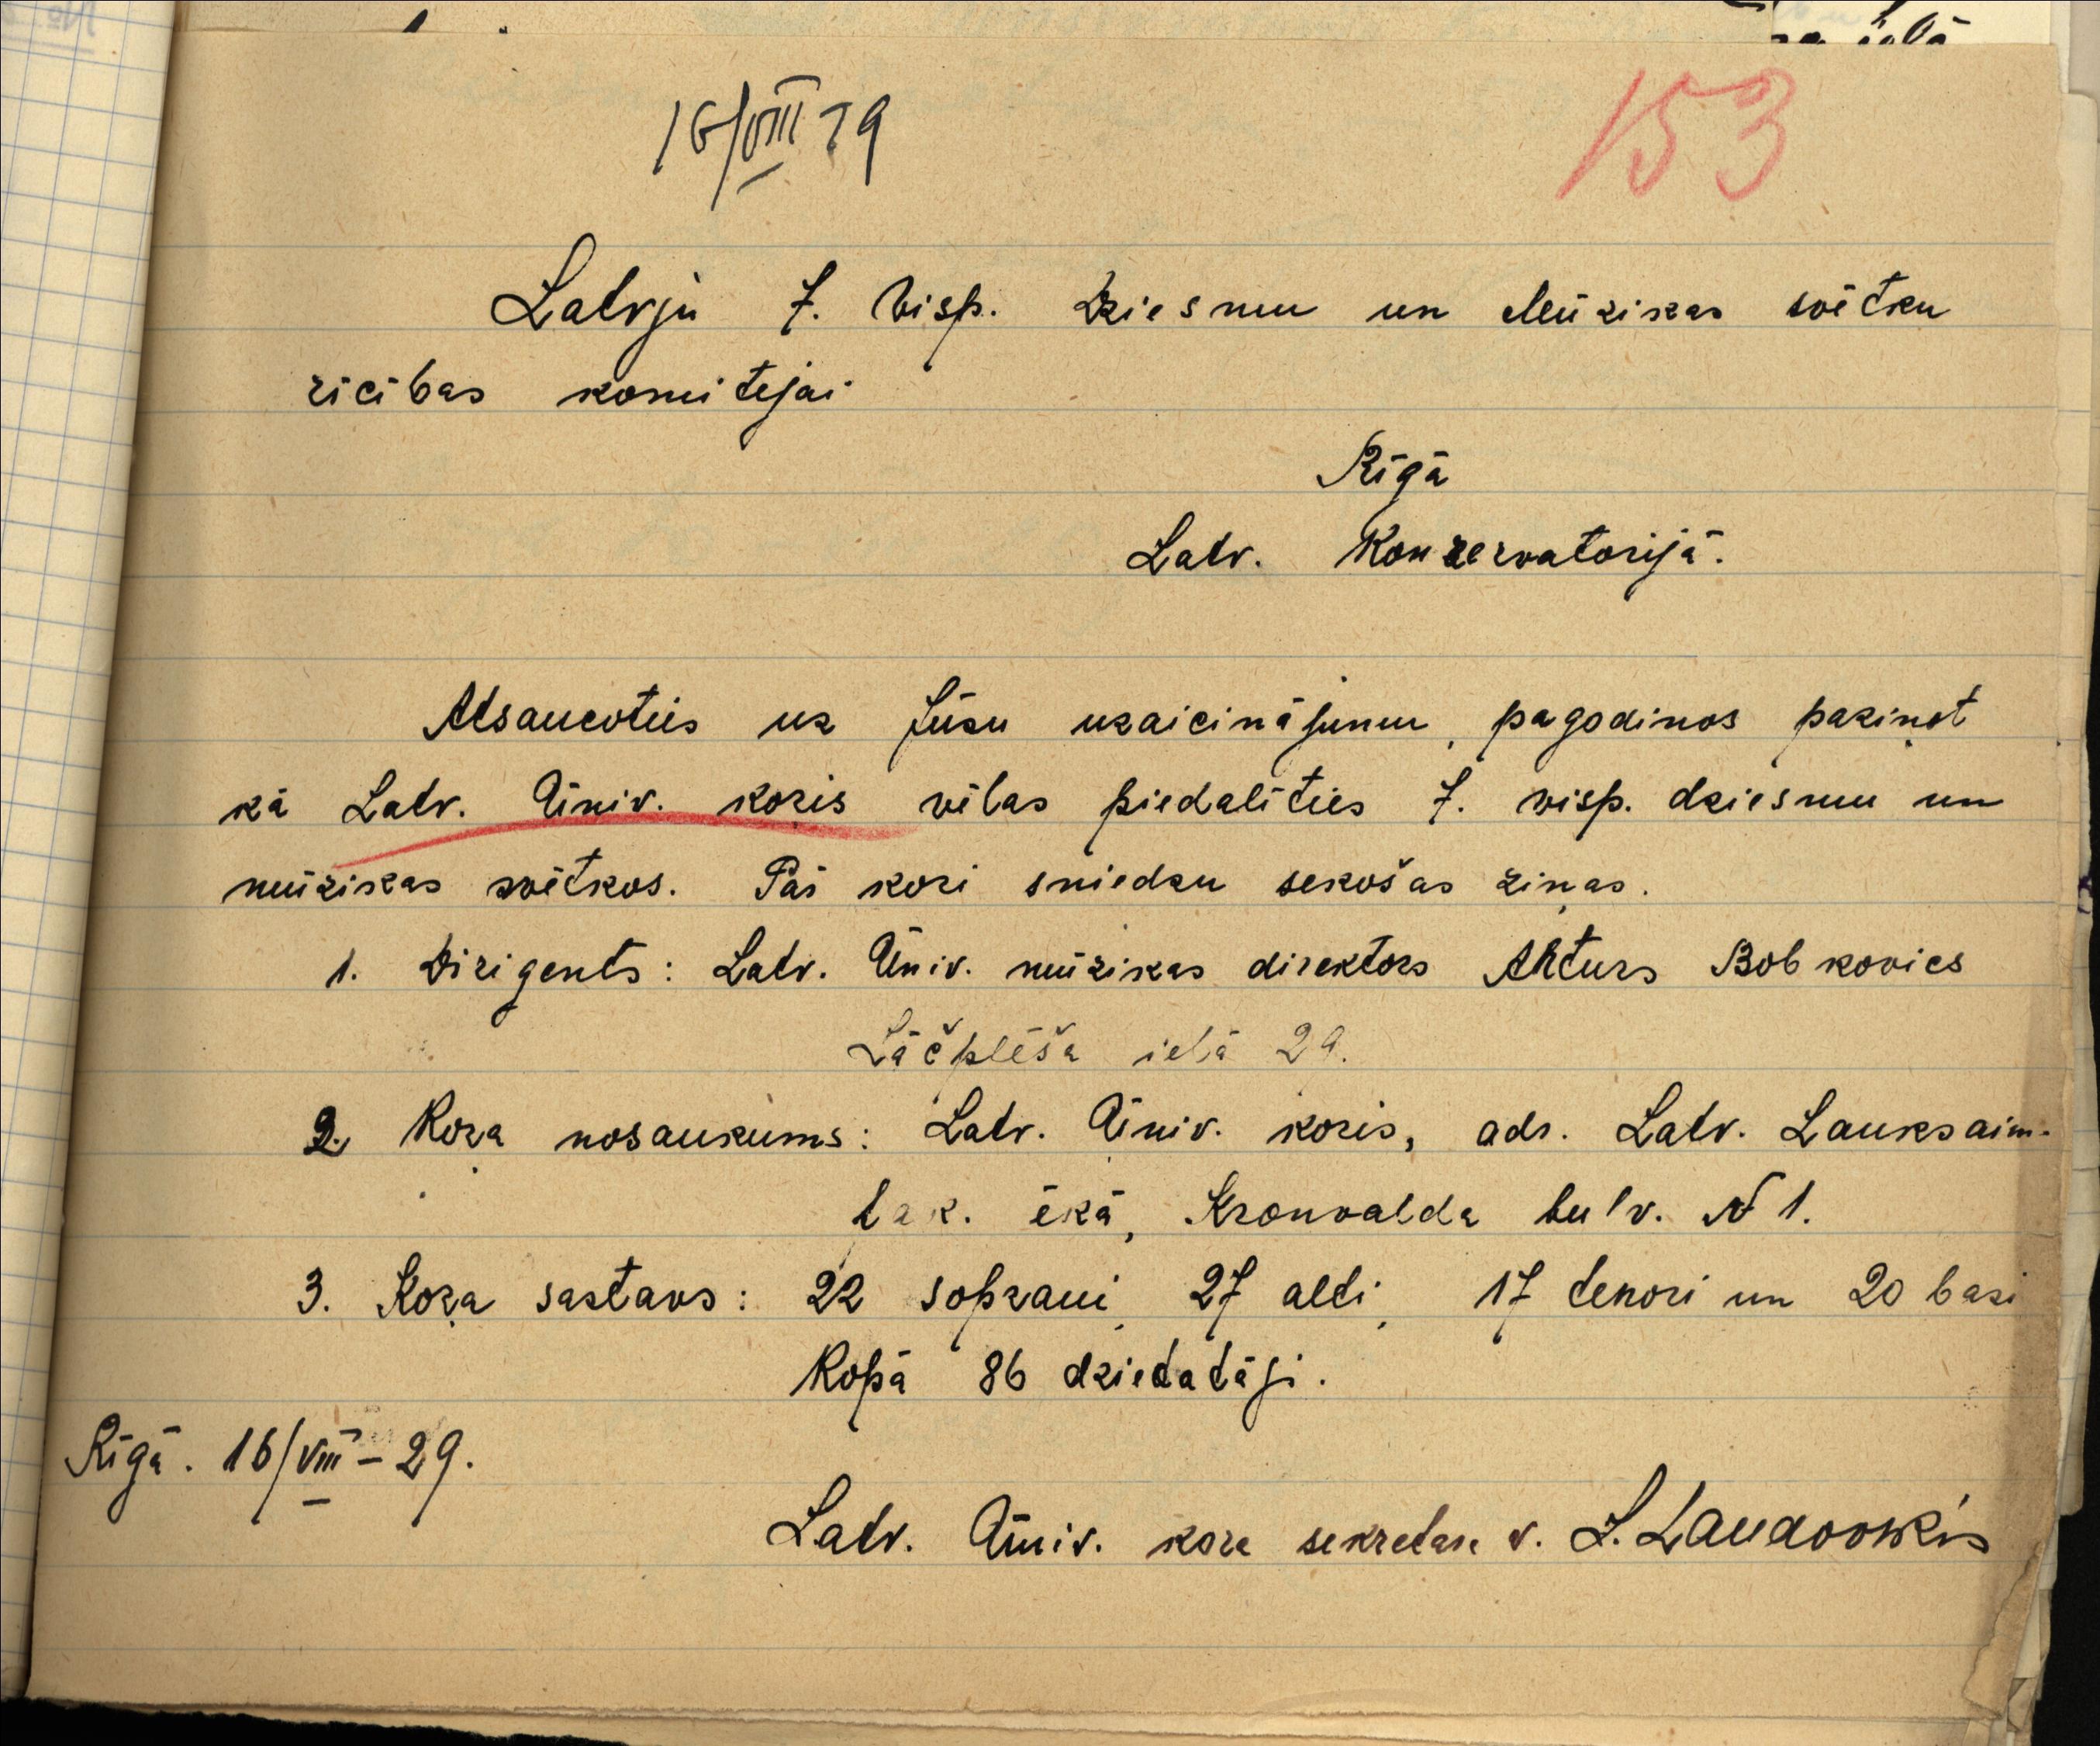 16/VIII 29
153
Latvju 7. Visp. Dziesmu un Mūzikas svētku
rīcības komitejai
Rīgā
Latv. Konzervatorijā.
Atsaucoties uz Jūsu uzaicinājumu, pagodinos paziņot
kā Latv. Ūniv. koŗis vēlas piedalīties 7. visp. dziesmu un
mūzikas svētkos. Par kori sniedzu sekošas ziņas.
1. Dirigents: Latv. Ūniv. mūzikas direktors Arturs Bobkovics
Lāčplēša ielā 29.
2. Koŗa nosaukums: Latv. Ūniv. koris, adr. Latv. Lauksaim-
fak. ēkā, Kronvalda bulv. № 1.
3. Koŗa sastavs: 22 soprani, 27 alti, 17 tenori un 20 basi
Kopā 86 dziedatāji.
Rīgā. 16/VIII – 29.
Latv. Ūniv. kora sekretara v.